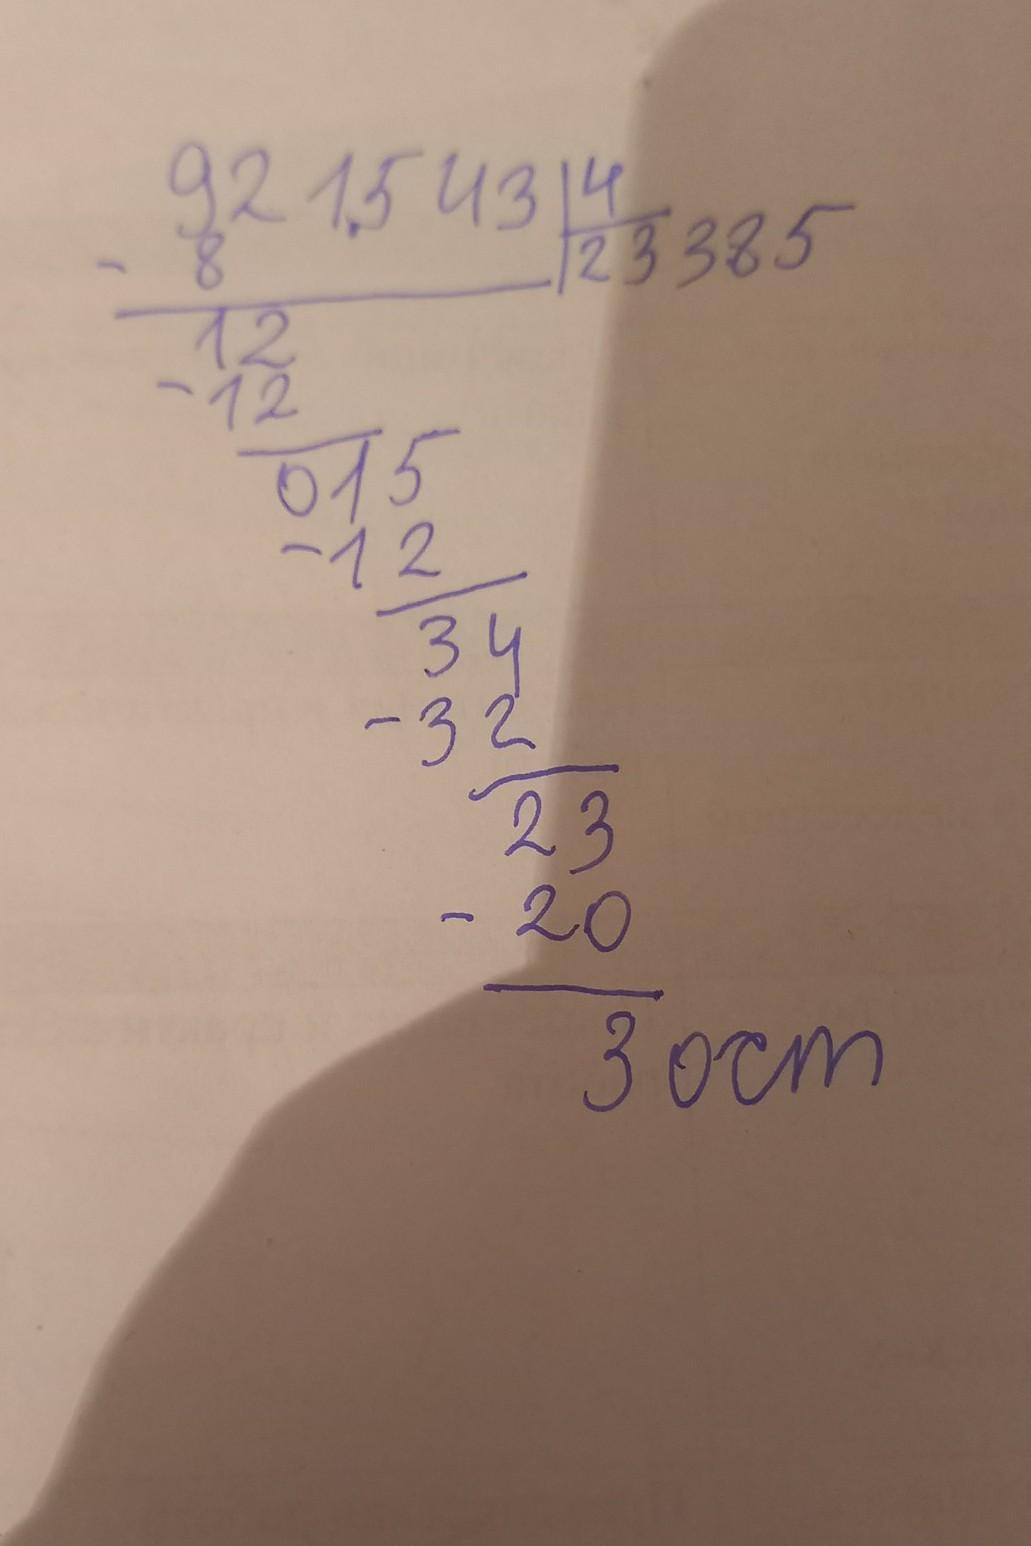 921543 4
- 8 23385
12
-12
015
-12
34
-32
23
- 20
3 ост